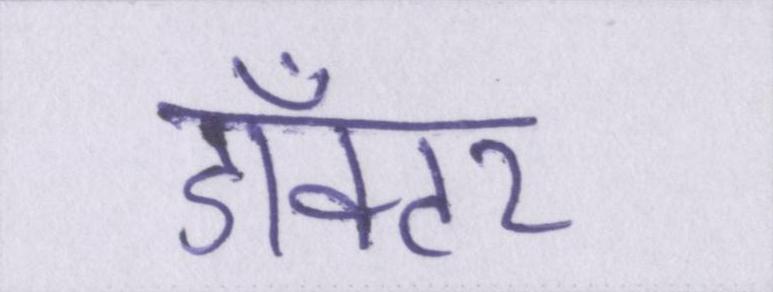 डाॅंक्टर